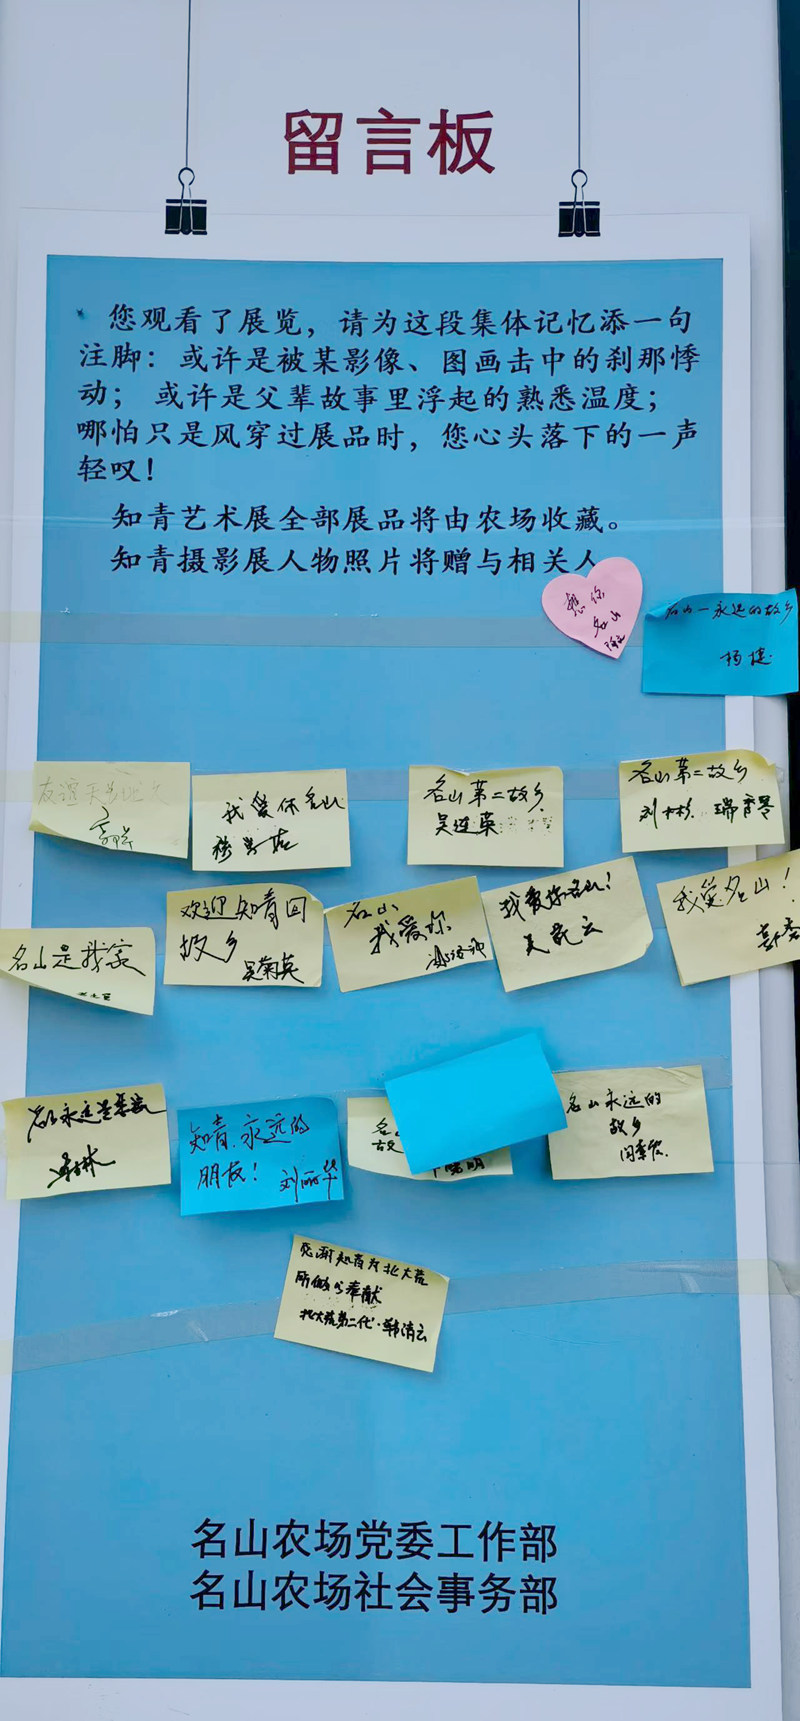 留言板
您观看了展览，请为这段集体记忆添一句
注脚：或许是被某影像、图画击中的刹那悸
动； 或许是父辈故事里浮起的熟悉温度；
哪怕只是风穿过展品时，您心头落下的一声
轻叹！
知青艺术展全部展品将由农场收藏。
知青摄影展人物照片将赠与相关人
想你
名山
名山一永远的故乡
杨捷
友谊天长地久
我爱你名山
名山第二故乡
吴连英
名山第二故乡
刘林彬
名山是我家
欢迎知青回
故乡
吴菊英
名山
我爱你
我爱你名山！
我爱名山！
名山永远是
知青.永远的
朋友！ 刘丽华
名山
故
明
名山永远的
故乡
感谢知青为北大荒
所做的奉献
北大荒第二代·韩清云
名山农场党委工作部
名山农场社会事务部